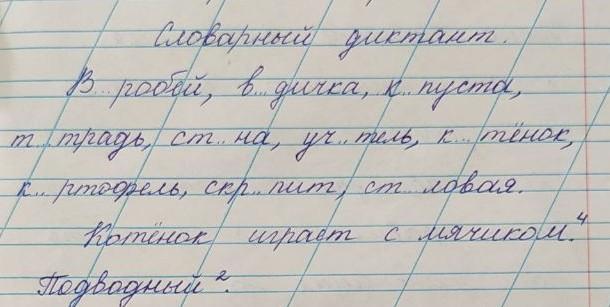 Словарный диктант.
В...робей, в...дичка, к..пуста,
т...традь, ст..на, уч..тель, к...тёнок,
к..ртофель, скр..пит, ст..ловая.
Котёнок играет с мячиком.⁴
Подводный².